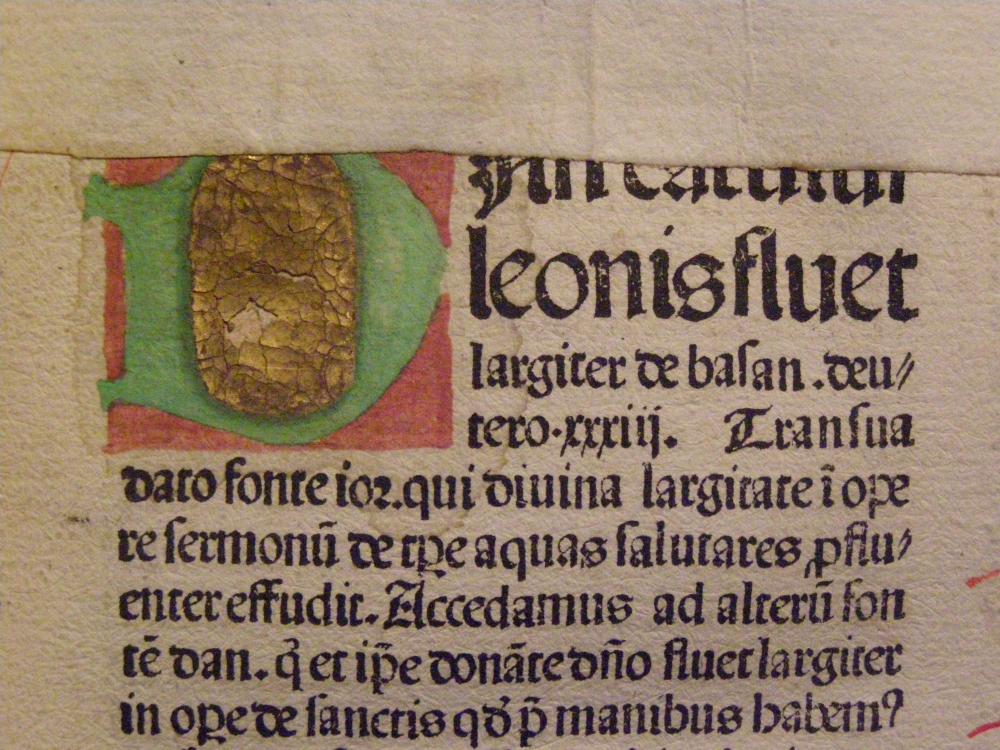 D
an catulus
leonis fluet
largiter de baſan . deu⸗
tero.xxxiij. Tranſua
dato fonte ioꝛ.qui diuina largitate ī ope
re ſermonū de tp̄e aquas ſalutares ꝓflu⸗
enter effudit. Accedamus ad alterū fon
tē dan. q̄ et ip̄e donāte dn̄o fluet largiter
in ope de ſanctis qd̄ p̄ manibus habemꝰ